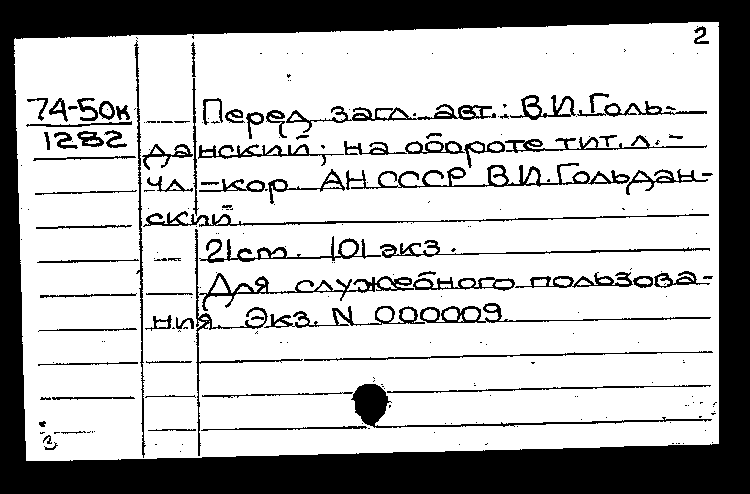 2
74-50к
1282
Перед загл. авт.: В.И.Голь-
данский; на обороте тит.л.-
чл.-кор. АН СССР В.И.Гольдан-
ский.
21cm. 101 экз.
Для служебного пользова-
ния. Экз. N 000009